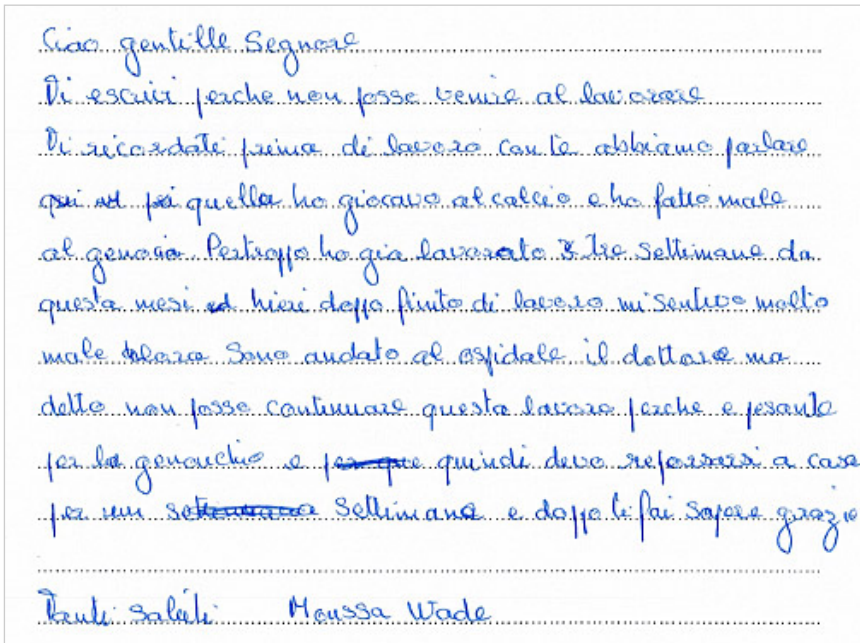 Ciao gentille Segnore
Vi escrivi perche non posse venire al lavorare
Vi ricordati prima di lavoro con te abbiamo parlare
quella ho giocavo al calcio e ho fatto male
al genocia. Pertroppo ho gia lavorato tre settimane da
questa mesi ed hieri doppo finito di lavoro mi sentivo molto
male Sono andato al ospidale il dottore ma
detto non posso continuare questa lavoro perche e pesante
per la genouchio e quindi devo repossarsi a casa
per un settimana e doppo ti fai sapere grazie
Tanti saluti Moussa Wade